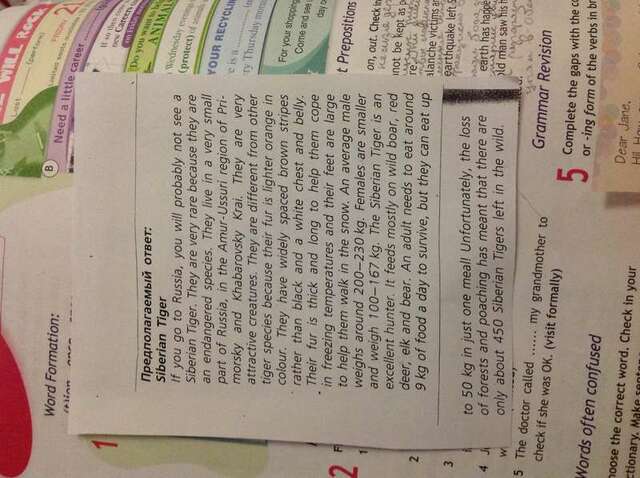 Предполагаемый ответ:
Siberian Tiger
If you go to Russia, you will probably not see a
Siberian Tiger. They are very rare because they are
an endangered species. They live in a very small
part of Russia, in the Amur-Ussuri region of Pri-
morsky and Khabarovsky Krai. They are very
attractive creatures. They are different from other
tiger species because their fur is lighter orange in
colour. They have widely spaced brown stripes
rather than black and a white chest and belly.
Their fur is thick and long to help them cope
in freezing temperatures and their feet are large
to help them walk in the snow. An average male
weighs around 200–230 kg. Females are smaller
and weigh 100–167 kg. The Siberian Tiger is an
excellent hunter. It feeds mostly on wild boar, red
deer, elk and bear. An adult needs to eat around
9 kg of food a day to survive, but they can eat up
to 50 kg in just one meal! Unfortunately, the loss
of forests and poaching has meant that there are
only about 450 Siberian Tigers left in the wild.
Word Formation:
1
2
2
3
4
5 The doctor called ...... my grandmother to
check if she was OK. (visit formally)
B
Need a little career
ANIMAL
(protect)
YOUR RECYCLING
For your shopping
Come and see
t Prepositions
on, out. Check in
not be kept as p
alanche victims a
earthquake left s
earth has happe
old man saw his h
Grammar Revision
5 Complete the gaps with the co
or -ing form of the verbs in br
Dear Jane,
Words often confused
hoose the correct word. Check in your
ctionary. Make sente